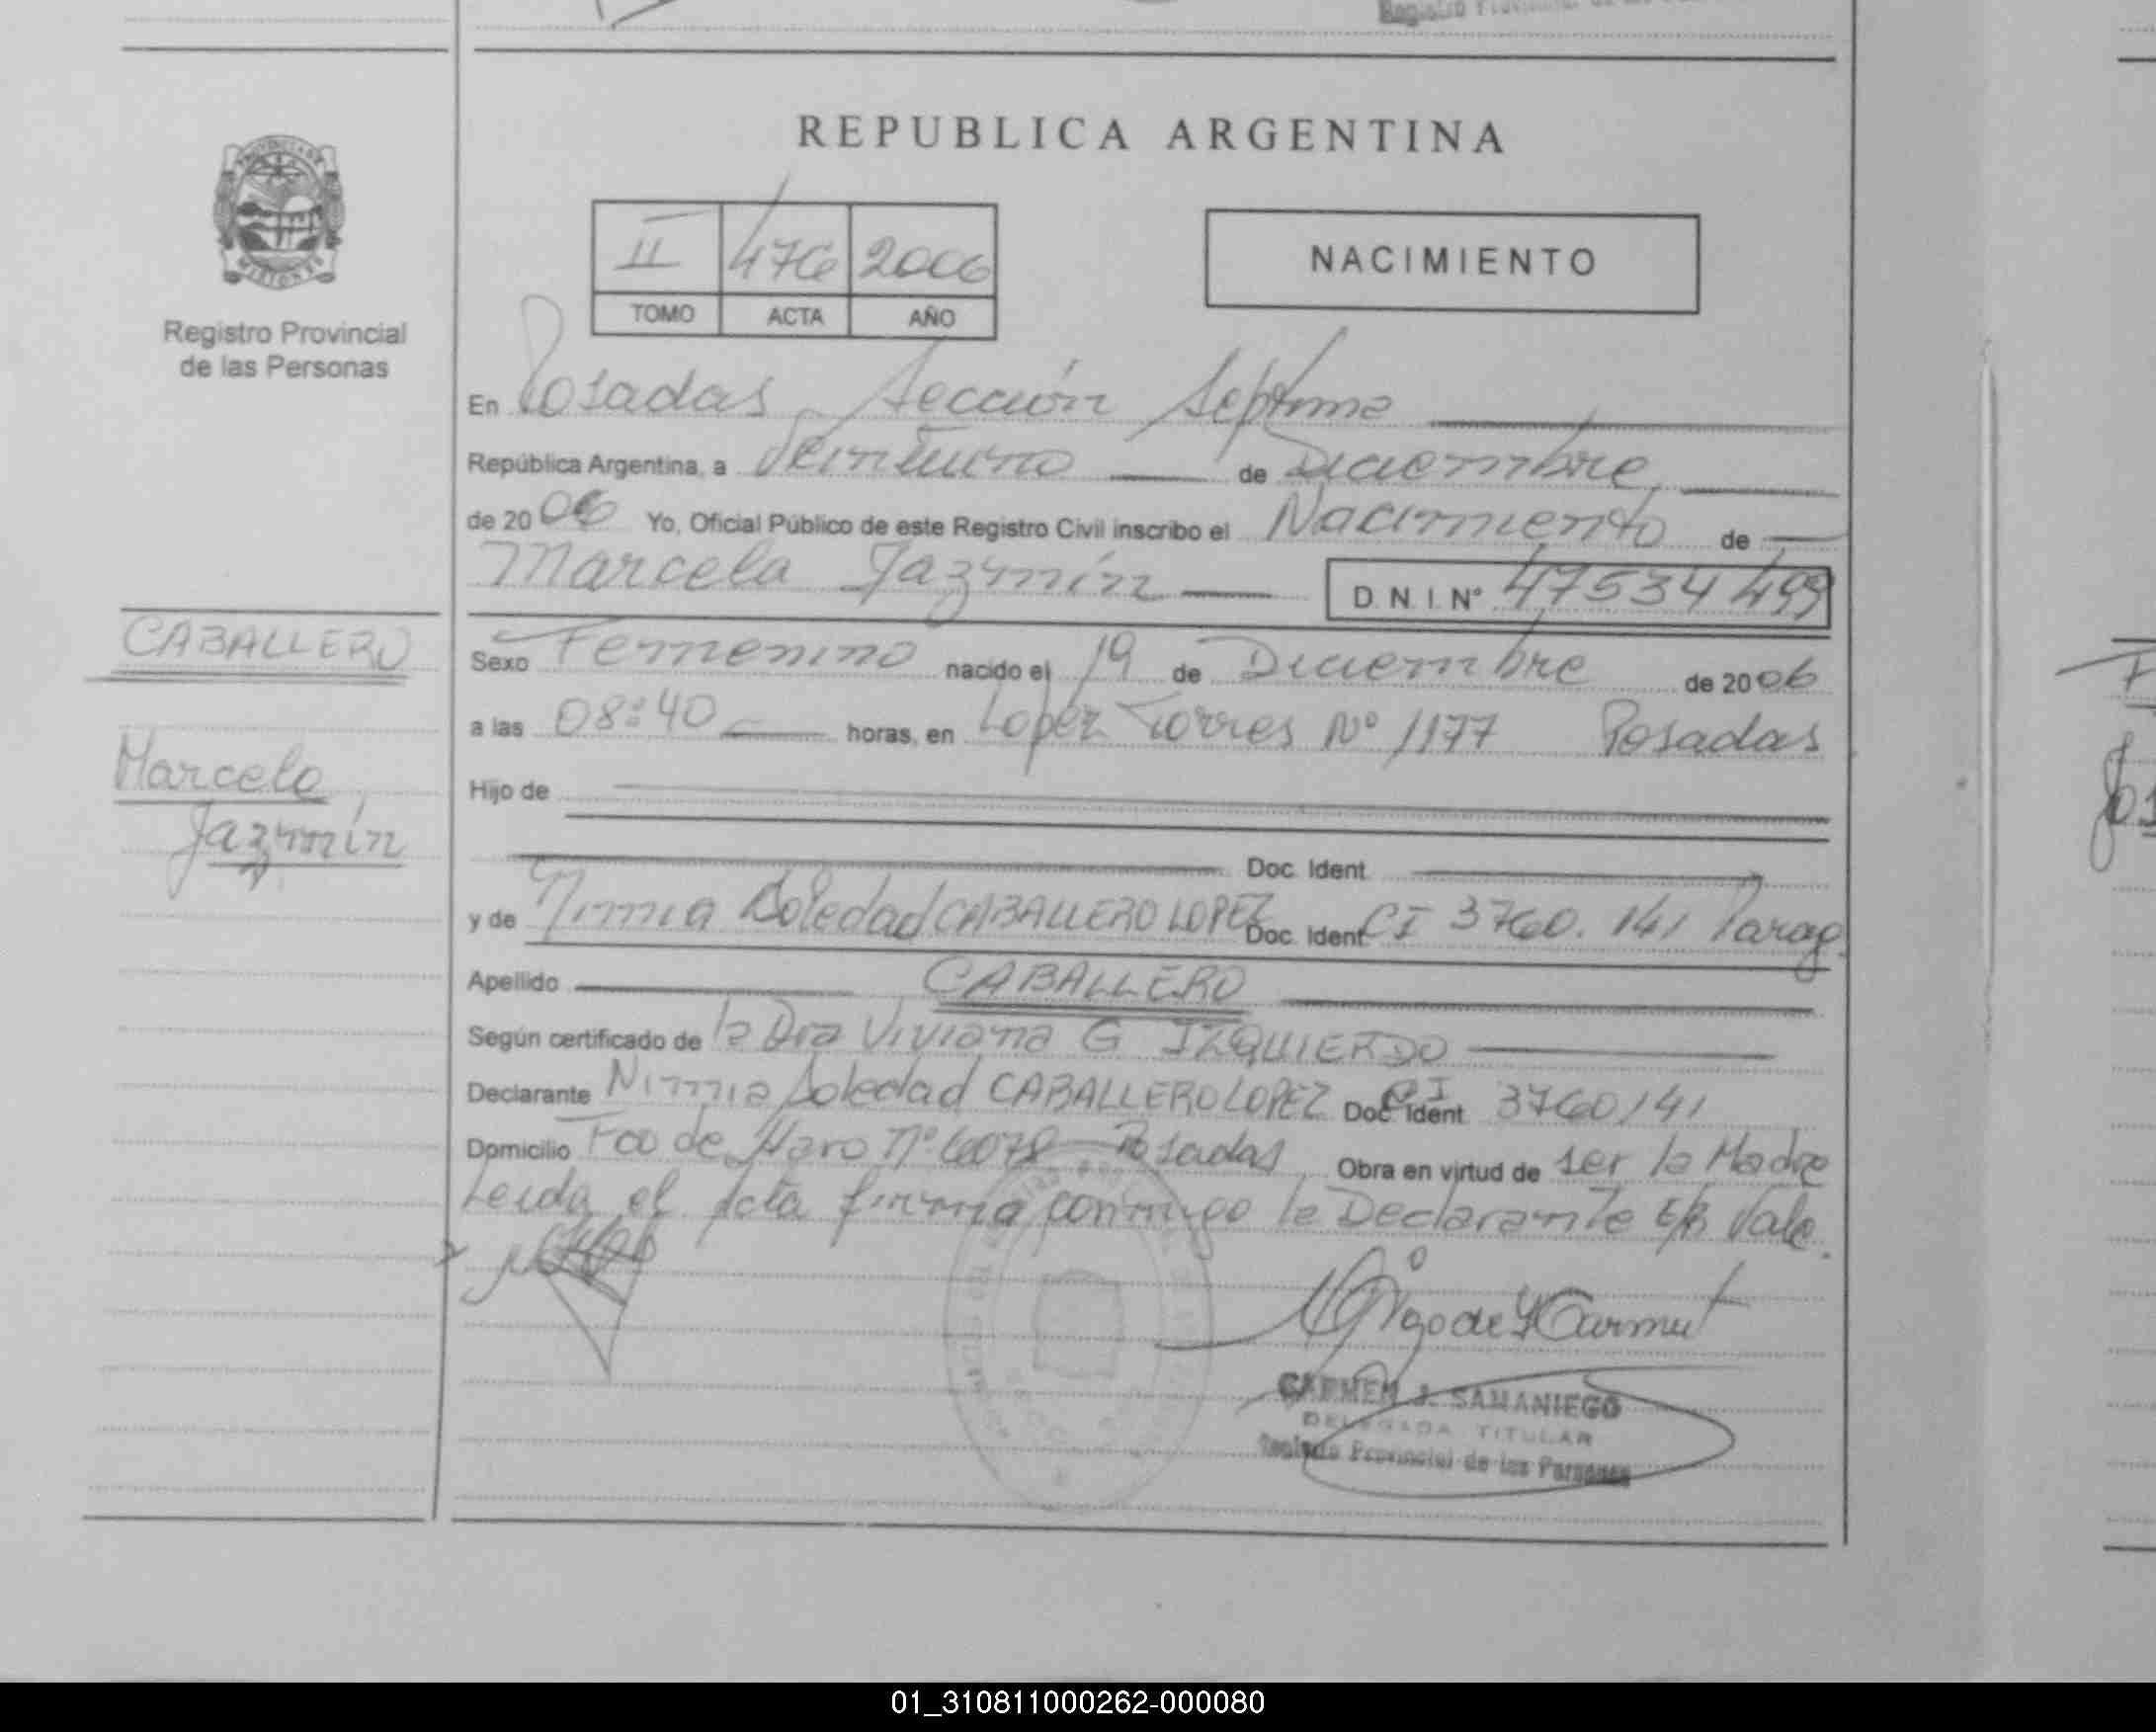 REPUBLICA ARGENTINA
II 476 2006
TOMO ACTA AÑO
NACIMIENTO
Registro Provincial
de las Personas
En Posadas, Sección Septima
República Argentina, a Veintiuno de Diciembre
de 2006 Yo, Oficial Público de este Registro Civil inscribo el Nacimiento de
Marcela Jazmín D.N.I. Nº 47534499
CABALLERO
Marcela
Jazmín
Sexo Femenino nacido el 19 de Diciembre de 2006
a las 08:40 horas, en Lopez Torres Nº 1177 Posadas
Hijo de
Doc. Ident.
y de Nimia Soledad CABALLERO LOPEZ Doc. Ident. CI 3760.141 Parag.
Apellido CABALLERO
Según certificado de la Dra Viviana G IZQUIERDO
Declarante Nimia Soledad CABALLERO LOPEZ Doc. Ident. CI 3760141
Domicilio Fco de Haro Nº 6078 Posadas Obra en virtud de ser la Madre
Leida el Acta firma conmigo la Declarante E/R Vale.
CARMEN J. SAMANIEGO
DELEGADA TITULAR
Registro Provincial de las Personas
01_310811000262-000080